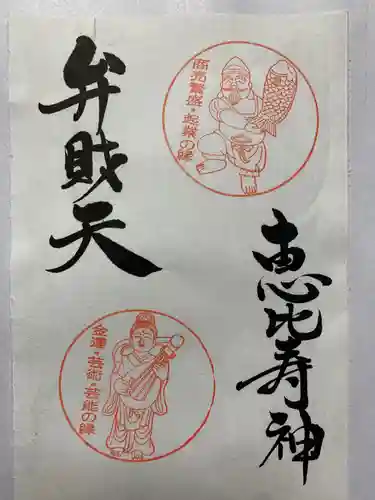 恵比寿神
商売繁盛・起業の縁
弁財天
金運・芸術・芸能の縁